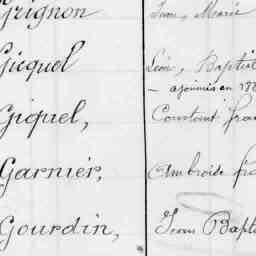 Grignon Jean, Marie
Gicquel Léon, Baptis
— ajournés en 188
Giquel, Constant fran
Garnier, Ambroise fra
Gourdin, Jean Bapti